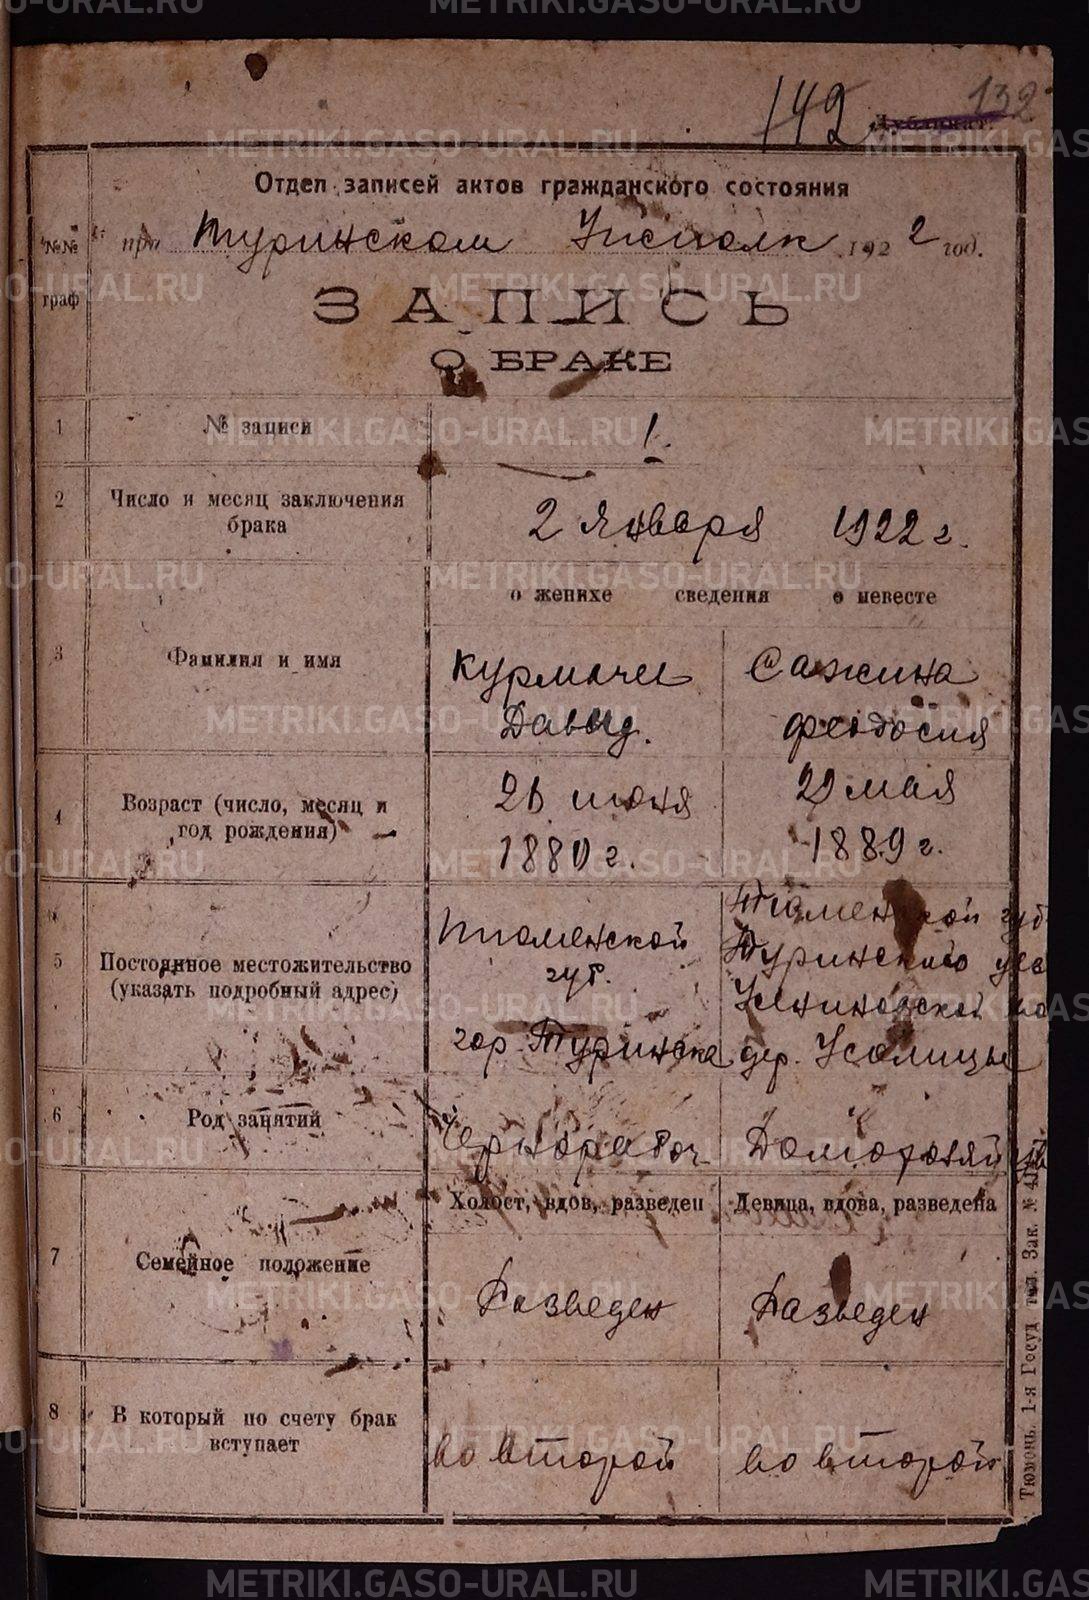 142
132
Дубликат.
Отдел записей актов гражданского состояния
№№ граф
при Туринском Исполк 1922 год.
ЗАПИСЬ
О БРАКЕ
1 № записи 1.
2 Число и месяц заключения брака
2 января 1922 г.
о женихе сведения о невесте
3 Фамилия и имя
Курмачев
Давыд.
Сажина
Феодосия
4 Возраст (число, месяц и год рождения)
26 июня
1880 г.
29 мая
1889 г.
5 Постоянное местожительство
(указать подробный адрес)
Тюменской
губ.
гор. Туринска
Тюменской губ
Туринского уез
дер. Усолицы
6 Род занятий
Чернорабоч
7 Семейное положение
Холост, вдов, разведен
Девица, вдова, разведена
Разведен
Разведен
8 В который по счету брак
вступает
во второй
во второй
Тюмень. 1-я Госуд тип. Зак. №
METRIKI.GASO-URAL.RU